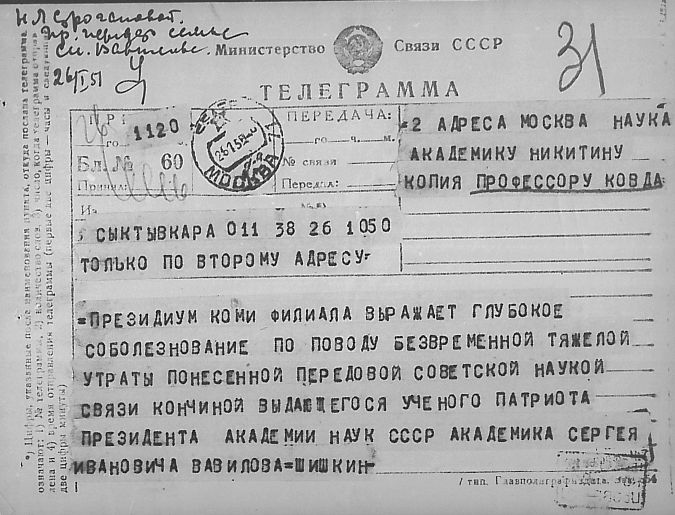 26/I 51
31
Министерство Связи СССР
ТЕЛЕГРАММА
ПЕРЕДАЧА:
го ч. м.
1120
Бл. № 60
№ связи
Передал:
МОСКВА
=2 АДРЕСА МОСКВА НАУКА
АКАДЕМИКУ НИКИТИНУ
КОПИЯ ПРОФЕССОРУ КОВДА
Из
СЫКТЫВКАРА 011 38 26 1050
ТОЛЬКО ПО ВТОРОМУ АДРЕСУ-
=ПРЕЗИДИУМ КОМИ ФИЛИАЛА ВЫРАЖАЕТ ГЛУБОКОЕ
СОБОЛЕЗНОВАНИЕ ПО ПОВОДУ БЕЗВРЕМЕННОЙ ТЯЖЕЛОЙ
УТРАТЫ ПОНЕСЕННОЙ ПЕРЕДОВОЙ СОВЕТСКОЙ НАУКОЙ
СВЯЗИ КОНЧИНОЙ ВЫДАЮЩЕГОСЯ УЧЕНОГО ПАТРИОТА
ПРЕЗИДЕНТА АКАДЕМИИ НАУК СССР АКАДЕМИКА СЕРГЕЯ
ИВАНОВИЧА ВАВИЛОВА=ШИШКИН-
/ тип. Главполиграфиздата.
*) Цифры, указанные после наименования пункта, откуда послана телеграмма,
означают: 1) № телеграммы, 2) количество слов, 3) число, когда телеграмма
и 4) время отправления телеграммы (первые две цифры — часы и
две цифры минуты)